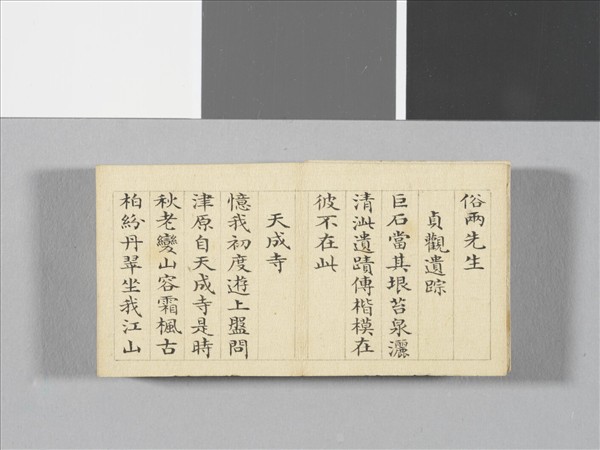 俗兩先生
貞觀遺踪
巨石當其垠苔泉灑
清泚遺蹟傳楷模在
彼不在此
天成寺
憶我初度遊上盤問
津原自天成寺是時
秋老變山容霜楓古
柏紛丹翠坐我江山